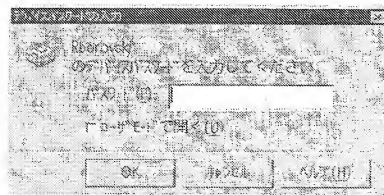 デバイスパスワードの入力
のデバイスパスワードを入力してください
パスワード(P):
ローザモードで開く(U)
OK
キャンセル
ヘルプ(H)